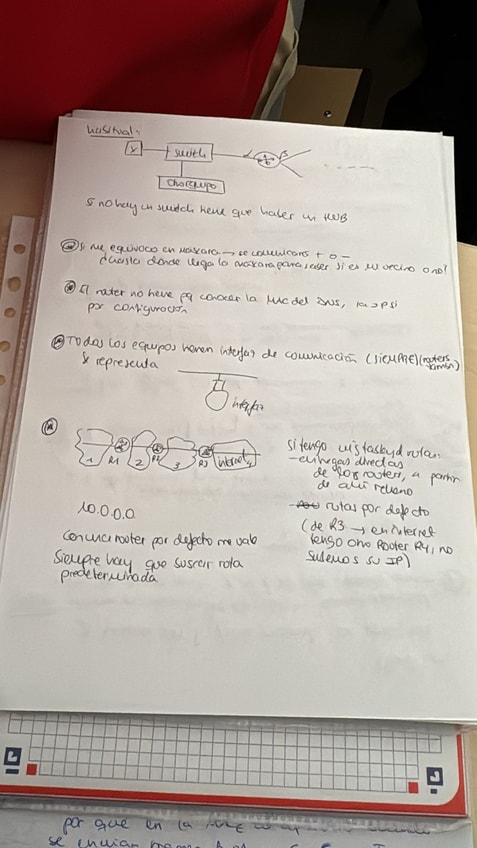 habitual:
x switch
otro equipo
Si no hay un switch tiene que haber un HUB
Si me equivoco en máscara → se comunicará + o -
hasta donde llega la máscara para saber si es vecino o no!
El router no tiene pq conocer la MAC del DNS, la @IP si
por configuración
Todos los equipos tienen interfaz de comunicación (SIEMPRE) (routers
también)
Se representa
interfaz
1 R1 2 R2 3 R3 internet
10.0.0.0
Con un router por defecto me vale
Siempre hay que buscar ruta
predeterminada
si tengo
- entregas directas
de los routers, a partir
de ahí relleno
- rutas por defecto
(de R3 → en internet
tengo otro Router R4, no
sabemos su IP)
por que en la
se envian